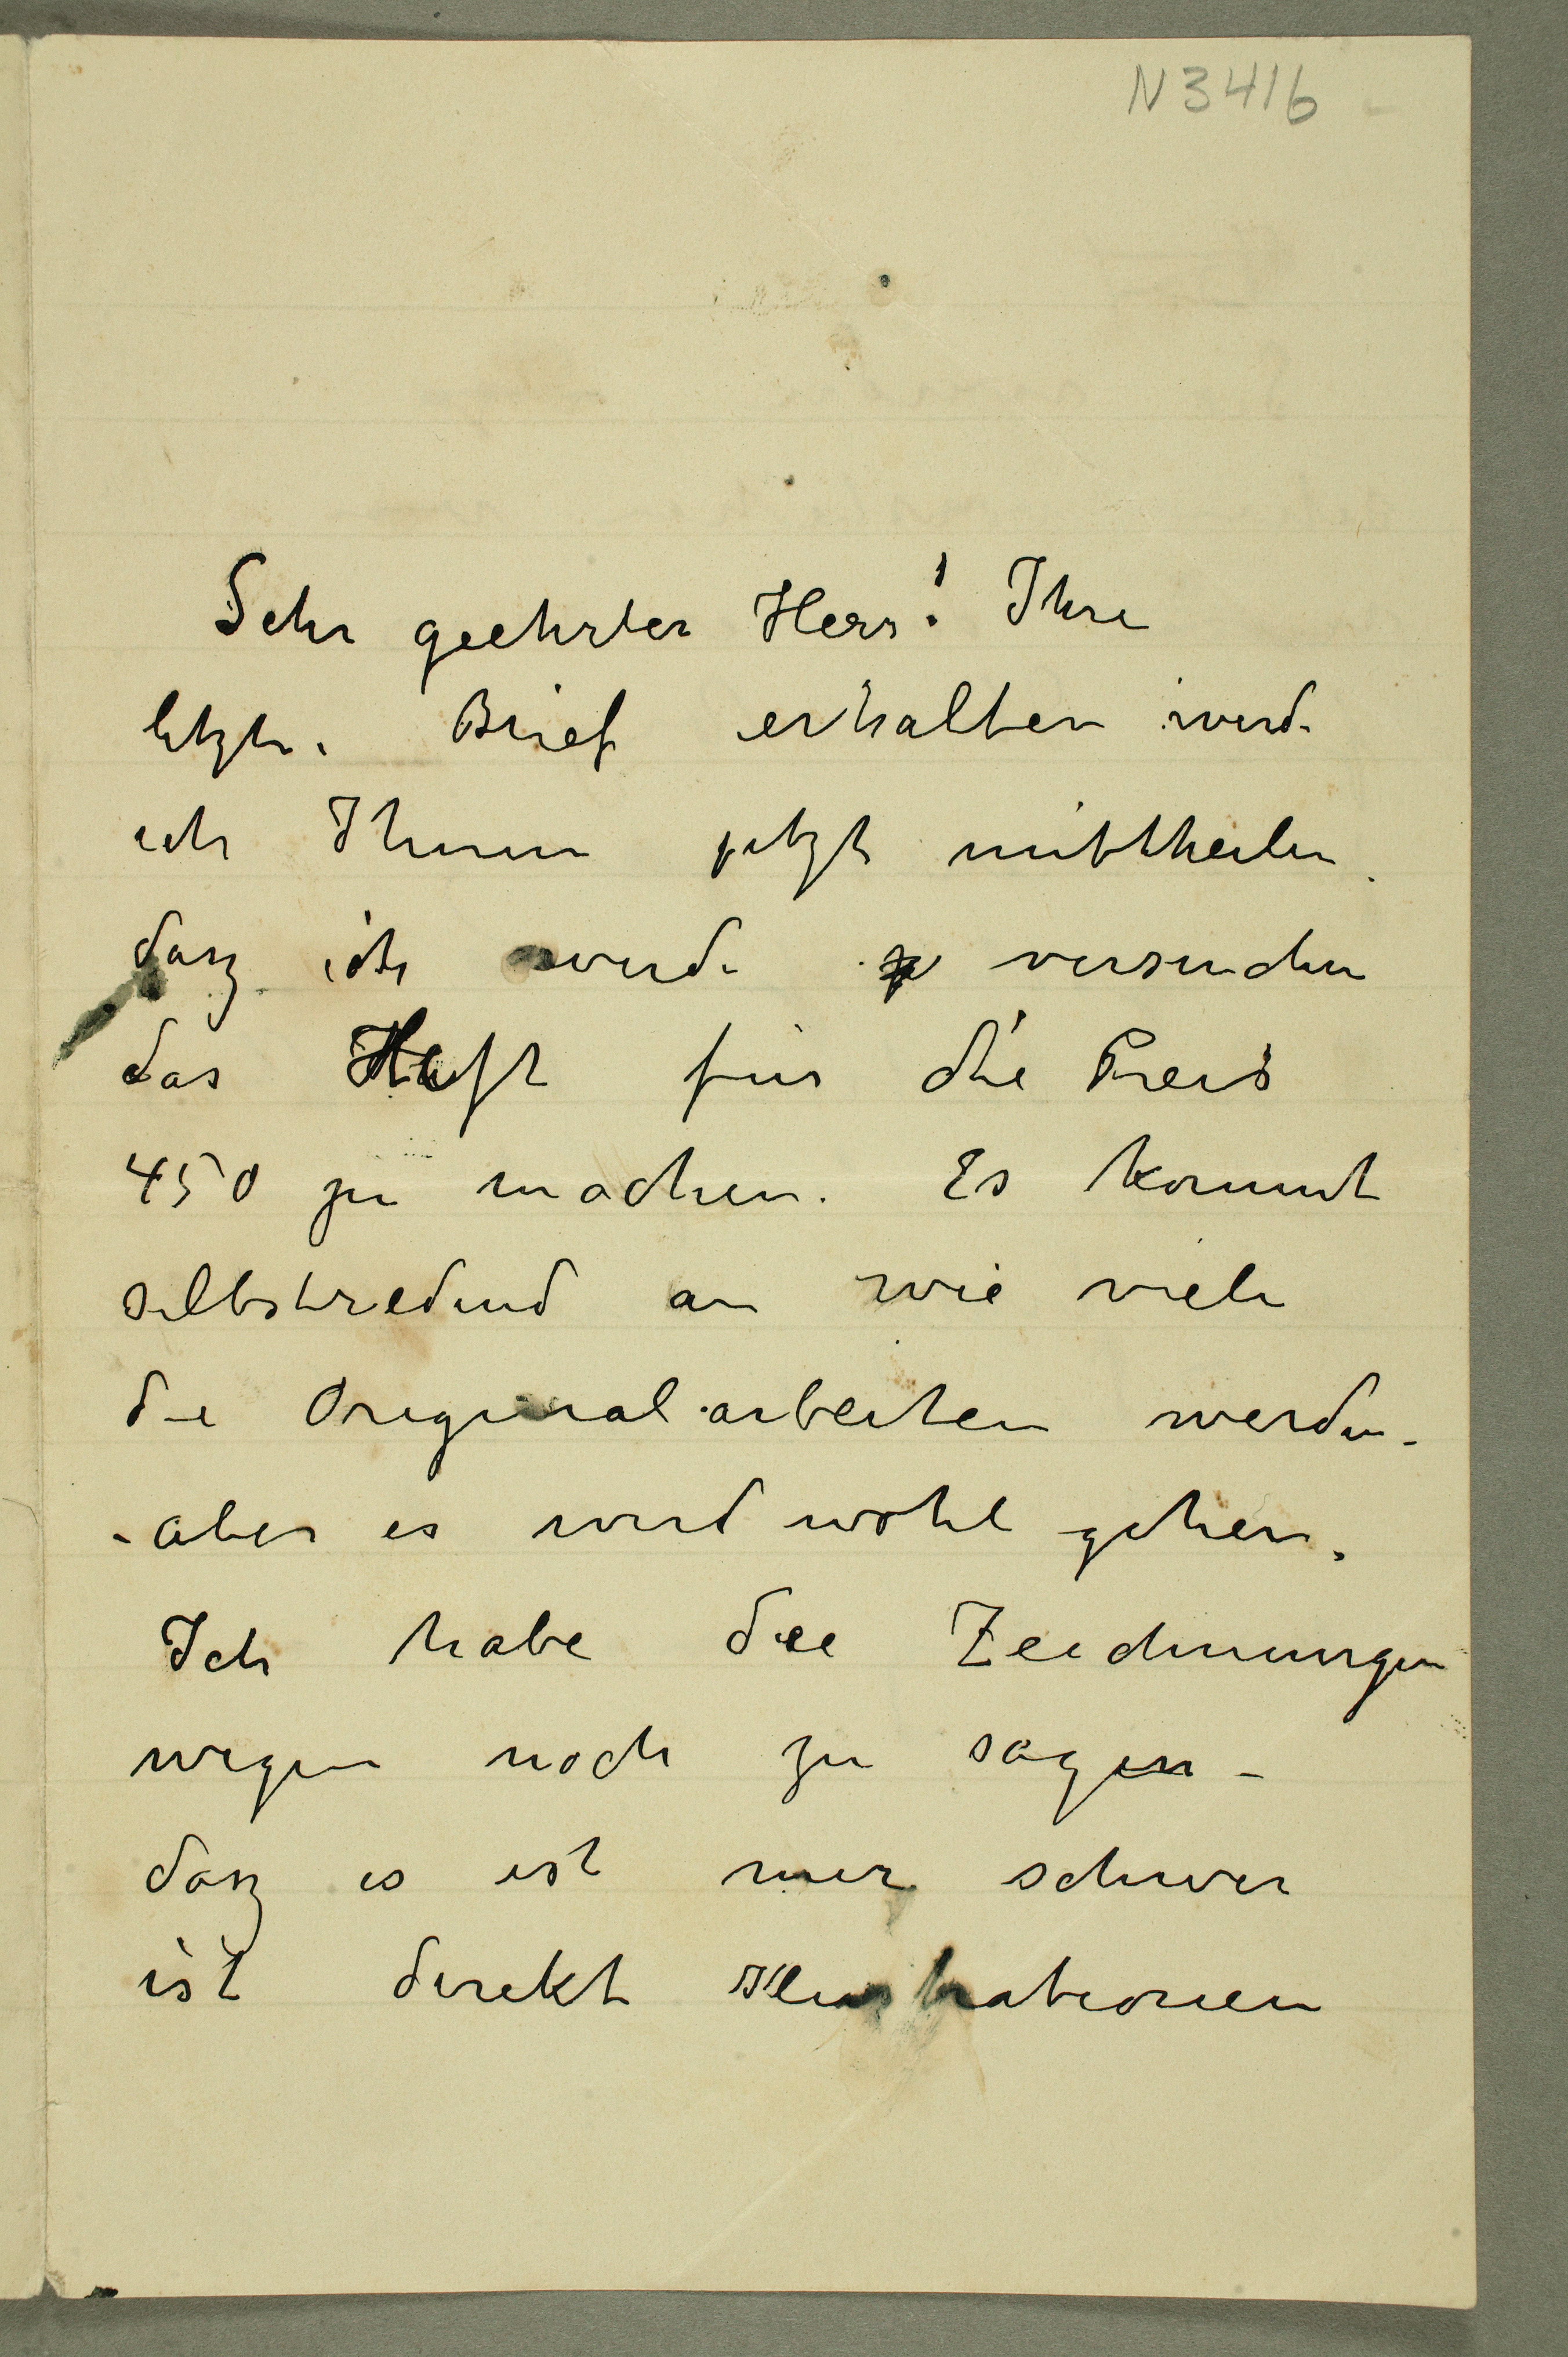 N 3416
Sehr geehrter Herr! Ihre
letzte. Brief erhalten werde
ich Ihnen jetzt mittheilen.
dasz ich werde versuchen
das Heft für die Preis
450 zu machen. Es kommt
selbstredend an wie viele
die Original arbeiten werden.
- aber es wird wohl gehen.
Ich habe die Zeichnungen
wegen noch zu sagen -
dasz es ist mir schwer
ist direkt Illustrationen